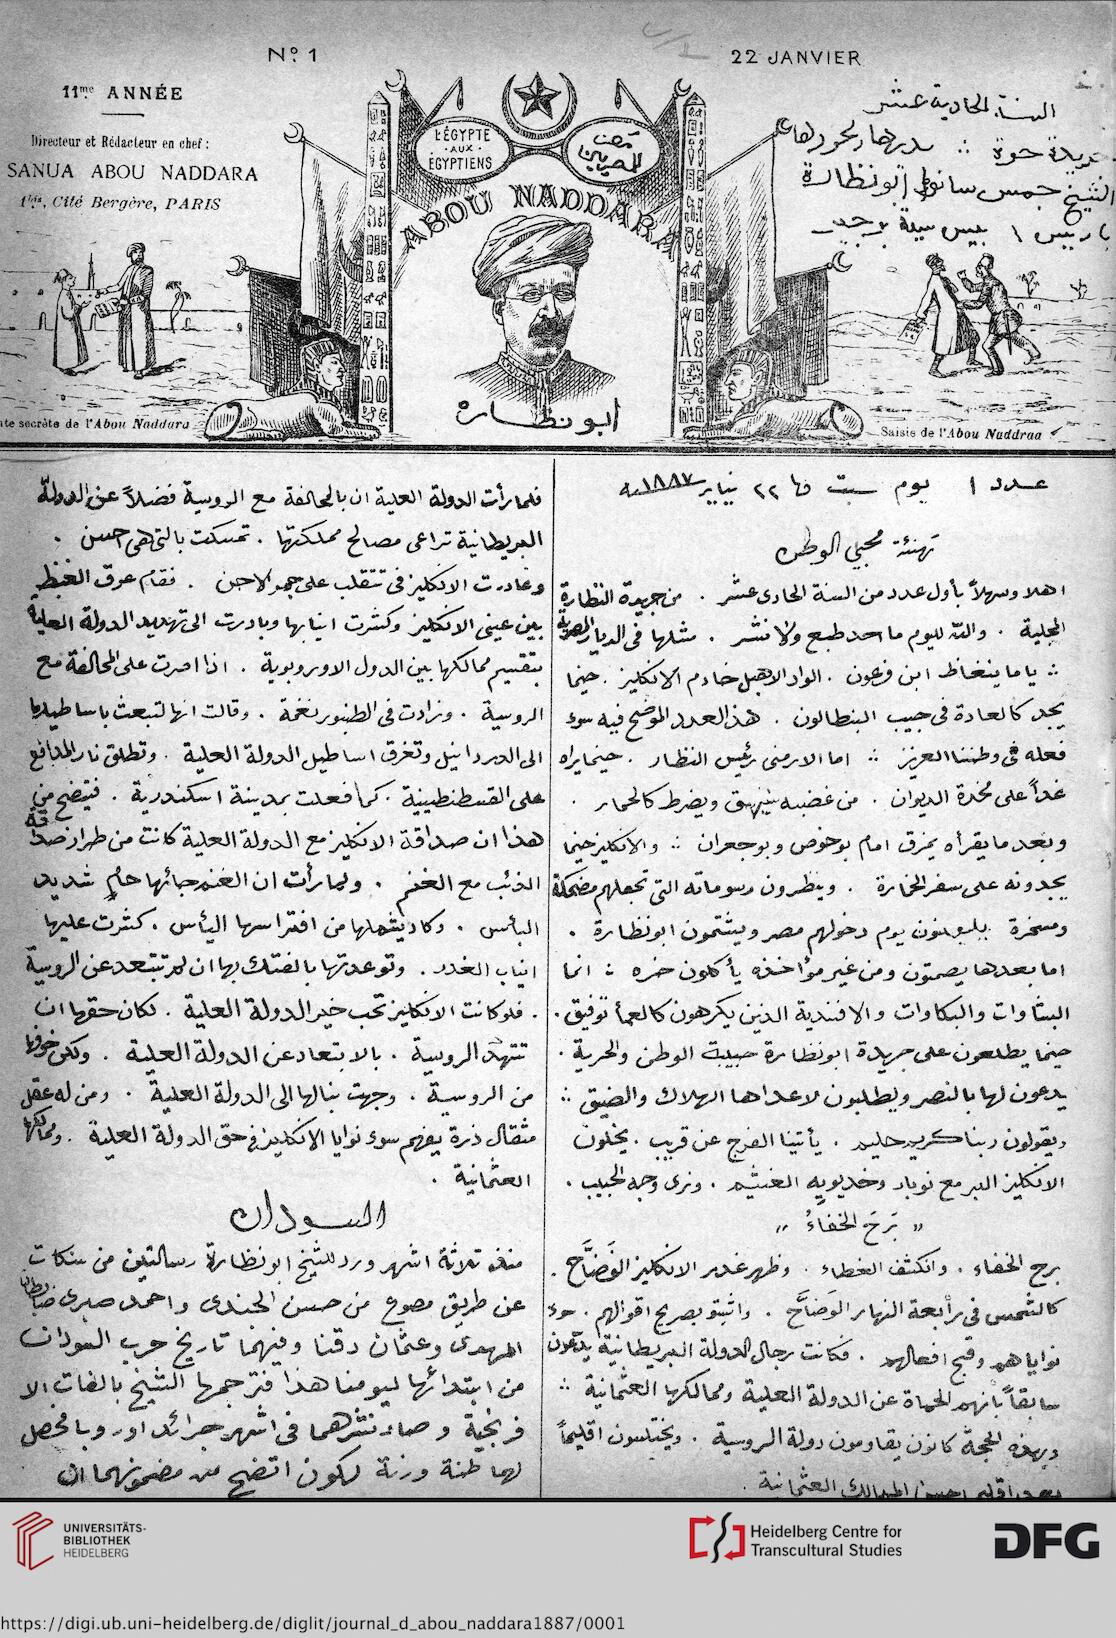 Nº 1
22 JANVIER
11me ANNÉE
Directeur et Rédacteur en chef :
SANUA ABOU NADDARA
1bis, Cité Bergère, PARIS
L'ÉGYPTE
AUX
ÉGYPTIENS
مصر
للمصريين
ABOU NADDARA
السنة الحادية عشر
جريدة حرة مديرها ومحررها
الشيخ جمس سانوا ابو نظارة
باريس ١ بيس سيتة برجير
te secrète de l'Abou Naddara
ابو نظارة
Saisie de l'Abou Naddraa
عدد ١ يوم سبت فى ٢٢ يناير سنة ١٨٨٧
تهنئة محبي الوطن
اهلا وسهلاً بأول عدد من السنة الحادى عشر . من جريدة النظارة
المحلية . والله لليوم ما احد طبع ولا نشر . مثلها فى الديار المصرية
ياما ينغاظ ابن فرعون . الواد الاهبل خادم الانكليز . حينما
يجد كالعادة فى جيب البنطالون . هذا العدد الموضح فيه سوء
فعله فى وطننا العزيز اما الارمنى رئيس النظار . حينما يراه
غداً على مخدة الديوان . من غضبه ينهق ويضرط كالحمار .
وبعد ما يقرأه يمزق امام بوخوص وبوجعران والانكليز حينما
يجدونه على سفر الخمارة . وينظرون رسوماته التى تجعلهم مضحكة
ومسخرة يلعنون يوم دخولهم مصر ويشتمون ابو نظارة .
اما بعدها يصمتون ومن غير مؤاخذه يأكلون خره انما
البشاوات والبكاوات والافندية الذين يكرهون كالعمأ توفيق .
حينما يطلعون على جريدة ابو نظارة حبيبة الوطن والحرية .
يدعون لها بالنصر ويطلبون لاعداها الهلاك والضيق
ويقولون ربنا كريم حليم . يأتينا الفرج عن قريب . يخلون
الانكليز البر مع نوبار وخديويه الغشيم . ونرى وجه الحبيب .
" بَرحَ الخفاءُ "
برح الخفاء . وانكشف الغطاء . وظهر غدر الانكليز الفَضّاح .
كالشمس فى رأبعة النهار الوَضاح . واثبتو بصريح اقوالهم . سوء
نواياهم وقبح افعالهم . فكانت رجال الدولة البريطانية يدّعون
سابقاً بأنهم الحماة عن الدولة العلية وممالكها العثمانية
وبهذه الحجة كانون يقاومون دولة الروسية . ويختلسون اقليماً
بعد اقليم احسن الممالك العثمانية .
فلما رأت الدولة العلية ان بالمحالفة مع الروسية فضلاً عن الدولة
البريطانية تراعى مصالح مملكتها . تمسكت بالتى هى احسن .
وغادرت الانكليز فى تتقلب على جمر الاحن . فقام عرق الغيظ
بين عينى الانكليز وكشرت انيابها وبادرت الى تهديد الدولة العلية
بتقسيم ممالكها بين الدول الاوروبوية . اذا اصرت على المحالفة مع
الروسية . وزادت فى الطنبور نغمة . وقالت انها تبعث باساطيلها
الى الدردانيل وتغرق اساطيل الدولة العلية . وتطلق نار المدافع
على القسطنطينية . كما فعلت بمدينة اسكندرية . فيتضح من
هذا ان صداقة الانكليز مع الدولة العلية كانت من طراز صداقة
الذئب مع الغنم . ولما رأت ان الغنم جائها حامٍ شديد
البأس . وكاد يشملها من افتراسها اليأس . كشرت عليها
انياب الغدر . وتوعدتها بالفتك بها ان لم تبتعد عن الروسية
. فلو كانت الانكليز تحب خير الدولة العلية . لكان حقها ان
تتهدد الروسية . بالابتعاد عن الدولة العلية . ولكن خوفها
من الروسية . وجهت بنالها الى الدولة العلية . ومن له عقل
مثقال ذرة يفهم سوء نوايا الانكليز فى حق الدولة العلية . وممالكها
العثمانية .
السودان
منذ ثلاثة اشهر ورد للشيخ ابو نظارة رسالتين من سنكات
عن طريق مصوع من حسن الجندى واحمد صبرى ضباط
المهدى وعثمان دقنا وفيهما تاريخ حرب السودان
من ابتدائها ليومنا هذا فترجمها الشيخ بالغات الا
فرنجية و صار نشرهما فى اشهر جرائد اوروبا فحصل
لهما طنة ورنة لكون اتضح من مضمونهما ان
UNIVERSITÄTS-
BIBLIOTHEK
HEIDELBERG
Heidelberg Centre for
Transcultural Studies
DFG
https://digi.ub.uni-heidelberg.de/diglit/journal_d_abou_naddara1887/0001